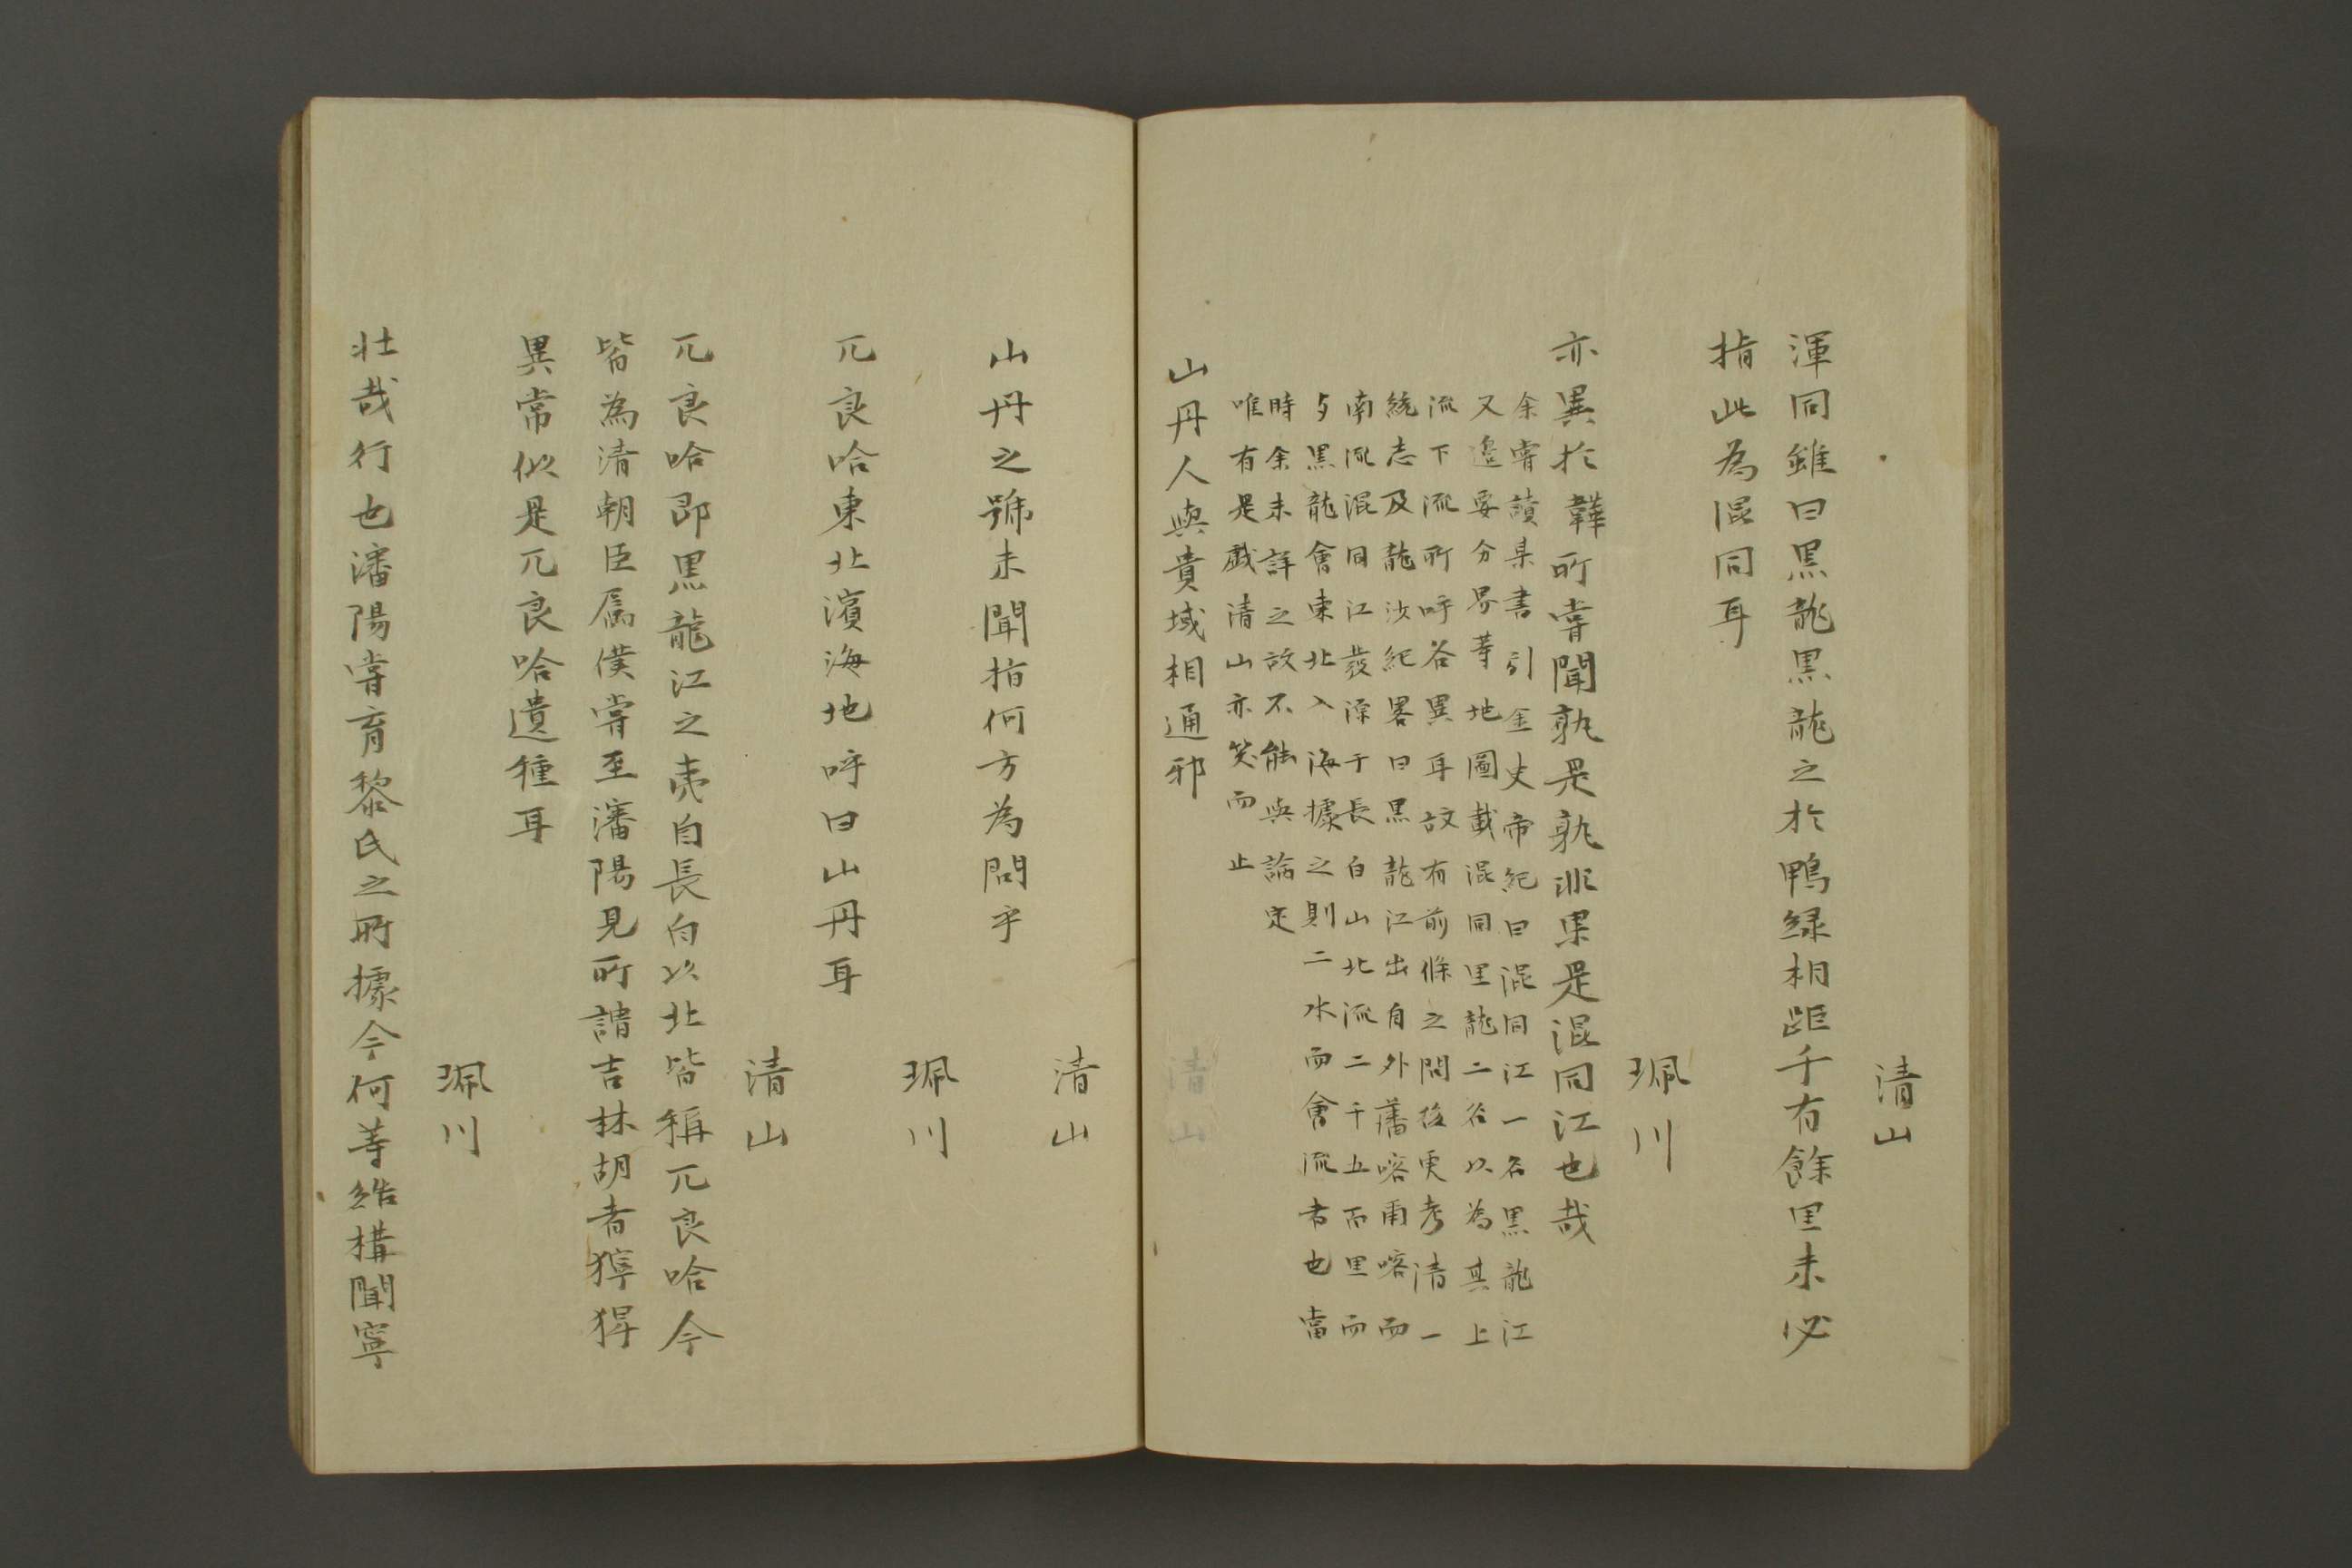 清山
渾同雖曰黑龍黑龍之於鴨緑相距千有餘里未必
指此為混同耳
珮川
亦異於韓所嘗聞孰是孰非果是混同江也哉
余嘗讀某書引金史帝紀曰混同江一名黑龍江
又邉要分界等地圖載混同里龍二名以為其上
流下流所呼各異耳故有前條之問後更考清一
統志及龍沙紀畧曰黑龍江出自外藩喀甭喀而
南流混同江發源于長白山北流二千五百里而
与黑龍會東北入海據之則二水而會流者也當
時余未詳之故不能與論定
唯有是戯清山亦笑而止
山丹人與貴域相通邪
清山
山丹之號未聞指何方為問乎
珮川
兀良哈東北濱海地呼曰山丹耳
清山
兀良哈即黒龍江之夷自長白以北皆稱兀良哈今
皆為清朝臣属僕嘗至瀋陽見所謂吉林胡者獰猂
異常似是兀良哈遺種耳
珮川
壮哉行也瀋陽嘗育黎氏之所據今何等結構聞寧